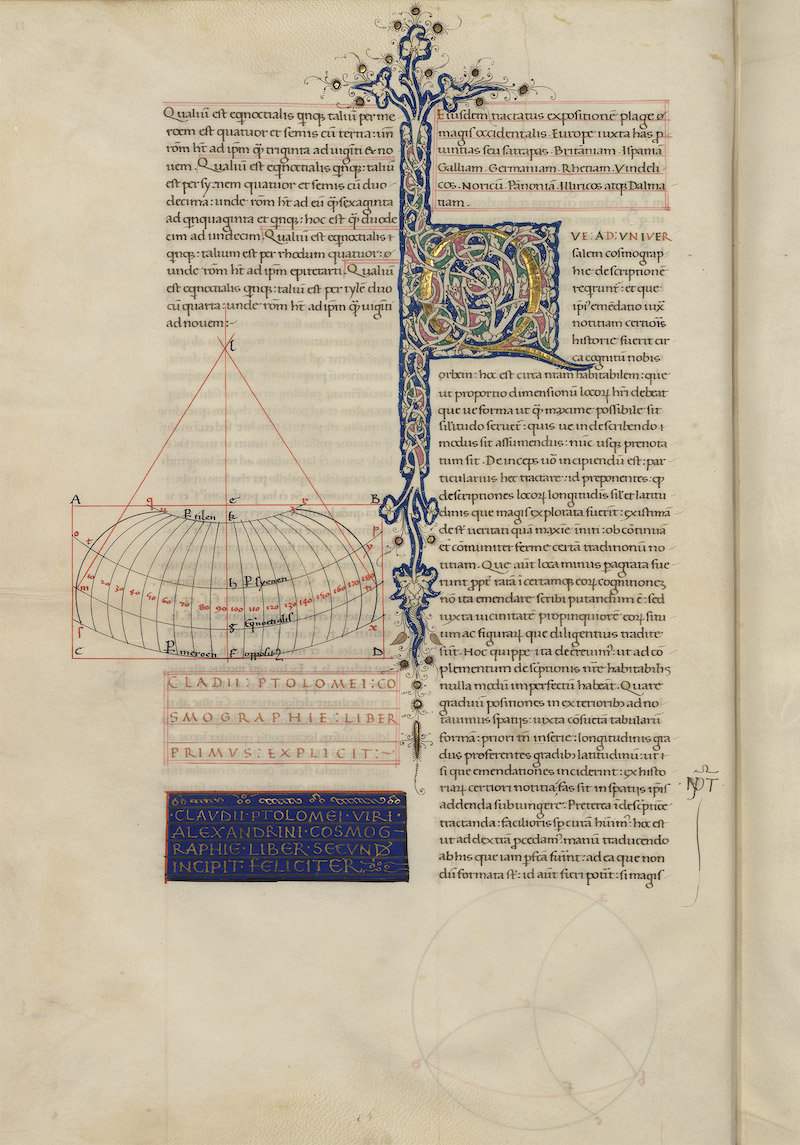 Qualiū est eqnoctialis qnqꝫ taliū per me
roem est quatuor et semis cū tertia: un
rōm ht ad ipm q̄ triginta ad uiginti & no
uem. Qualiū est eqnoctialis qnqꝫ: taliū
est per syenem quatuor et semis cū duo
decima: unde rōm ht ad eū q̄ sexaginta
ad qnquaginta et qnqꝫ: hoc est q̄ duode
cim ad undecim. Qualiū est eqnoctialis
qnqꝫ: talium est per rhodum quatuor: &
unde rōm ht ad ipm epitetarti. Qualiū
est eqnoctialis qnqꝫ: taliū est per tylē duo
cū quarta: unde rōm ht ad ipm q̄ uiginti
ad nouem:
A q e r B
P tilen k
o t
p
m 10 20 30 40 50 60 70 80 90 100 110 120 130 140 150 160 170 180 n
h P syenen
g Eqnoctialis
s x
C P meroen f oppositū D
CLADII: PTOLOMEI: CO
SMOGRAPHIE: LIBER
PRIMVS: EXPLICIT:
·CLAVDII·PTOLOMEI·VIRI·
ALEXANDRINI·COSMOG-
RAPHIE·LIBER·SECVND
INCIPIT·FELICITER
Eiusdem tractatus expositionē plage &
magis occidentalis Europe iuxta has p
uintias seu satrapas. Britaniam. Ispaniā
Galliam. Germaniam. Rhetiam. Vindeli
cos. Noricū. Panoniā. Illiricos atqꝫ Dalma
tiam.
QVE AD: VNIVER
salem cosmograp
hie descriptionē
reqrunt: et que
ipi emēdatio iux
notitiam certioris
historie fuerit cir
ca cognitū nobis
orbem: hoc est circa nram habitabilem: que
ut proporno dimensionū locoꝝ hri debeat
que ue forma ut q̄ maxime possibile sit
silitudo seruet: quis ue in describendo
modus sit assumendus: nūc usqꝫ prenota
tum sit. Deinceps uō incipiendū est: par
ticularius hec tractare: id preponentes: qꝫ
descriptiones locoꝝ longitudīs sil et latitu
dinis que magis explorata fuerit: existima
de st ueritati quā maxīe initi: ob continuā
et comuniter ferme certā traditionū no
titiam. Que aūt loca minus pagrata fue
runt
nō ita emendare scribi putandum ē: sed
iuxta uicinitatē propinquiorē eoꝝ situ
um ac figuraꝝ que diligentius tradite
sūt. Hoc quippe ita decreuim: ut ad co
plementum descptionis nre habitabilis
nulla modū imperfectū habeat. Quare
graduū positiones in exteriorib ad no
tauimus spatijs: iuxta cōsueta tabularū
formā: priori tn inserie: longitudinis gra
dus proferentes gradib latitudinū: ut
si que emendationes inciderint: ex histo
riaꝝ certiori notitia fas sit in spatijs ipis
addenda subiungere: Preterea
tractanda: facilioris hoc est
ut ad dextrā pcedam manū traducendo
ab his que iam pscta fuīnt: ad ea que non
dū formata st: id aūt fieri potīt: si magis
NOT